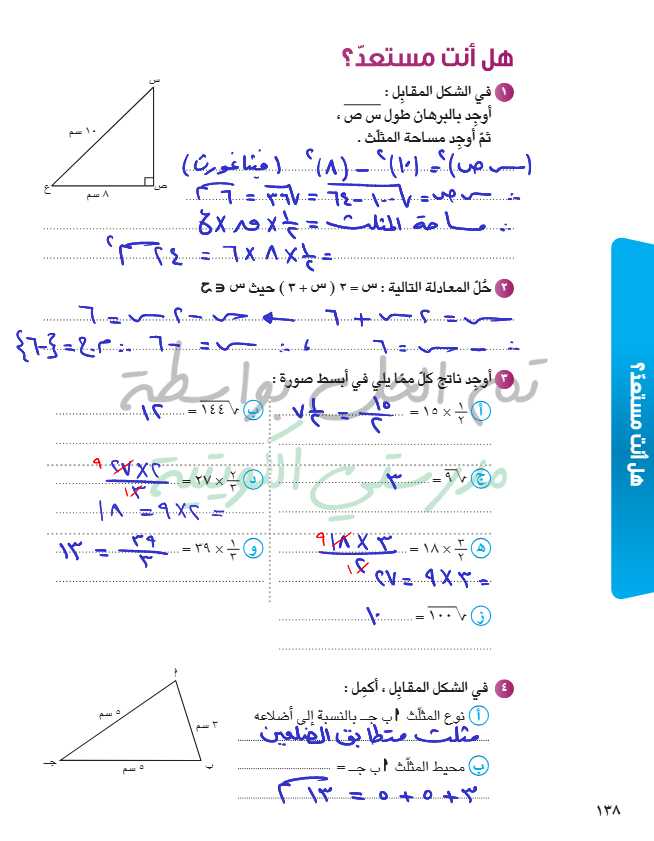 هل أنت مستعدّ؟
١ في الشكل المقابِل :
أوجِد بالبرهان طول س ص ،
ثمّ أوجِد مساحة المثلّث .
س
١٠ سم
ع
٨ سم
ص
(س ص)٢ = (١٠)٢ − (٨)٢ (فيثاغورث)
∴ س ص = √١٠٠−٦٤ = √٣٦ = ٦ سم
∴ مساحة المثلث = ١/٢ × ق × ع
= ١/٢ × ٨ × ٦ = ٢٤ سم٢
٢ حُلّ المعادلة التالية : س = ٢ ( س + ٣ ) حيث س ∈ ح
س = ٢س + ٦ ← س − ٢س = ٦
∴ −س = ٦ ، ∴ س = −٦ ∴ م.ح = {−٦}
تم الحل بواسطة
مدرستي الكويتية
٣ أوجِد ناتج كلّ ممّا يلي في أبسط صورة :
أ ١/٢ × ١٥ = ١٥/٢ = ٧ ١/٢
ب √١٤٤ = ١٢
ج √٩ = ٣
د ٢/٣ × ٢٧ = ٢×٢٧/٣ ٩ ١
= ٢×٩ = ١٨
هـ ٣/٢ × ١٨ = ٣ × ١٨/٢ ٩ ١
= ٣×٩ = ٢٧
و ١/٣ × ٣٩ = ٣٩/٣ = ١٣
ز √١٠٠ = ١٠
٤ في الشكل المقابِل ، أكمِل :
أ نوع المثلّث أ ب جـ بالنسبة إلى أضلاعه
مثلث متطابق الضلعين
ب محيط المثلّث أ ب جـ =
٣ + ٥ + ٥ = ١٣ سم
أ
٥ سم
٣ سم
جـ
٥ سم
ب
هل أنت مستعدّ؟
١٣٨